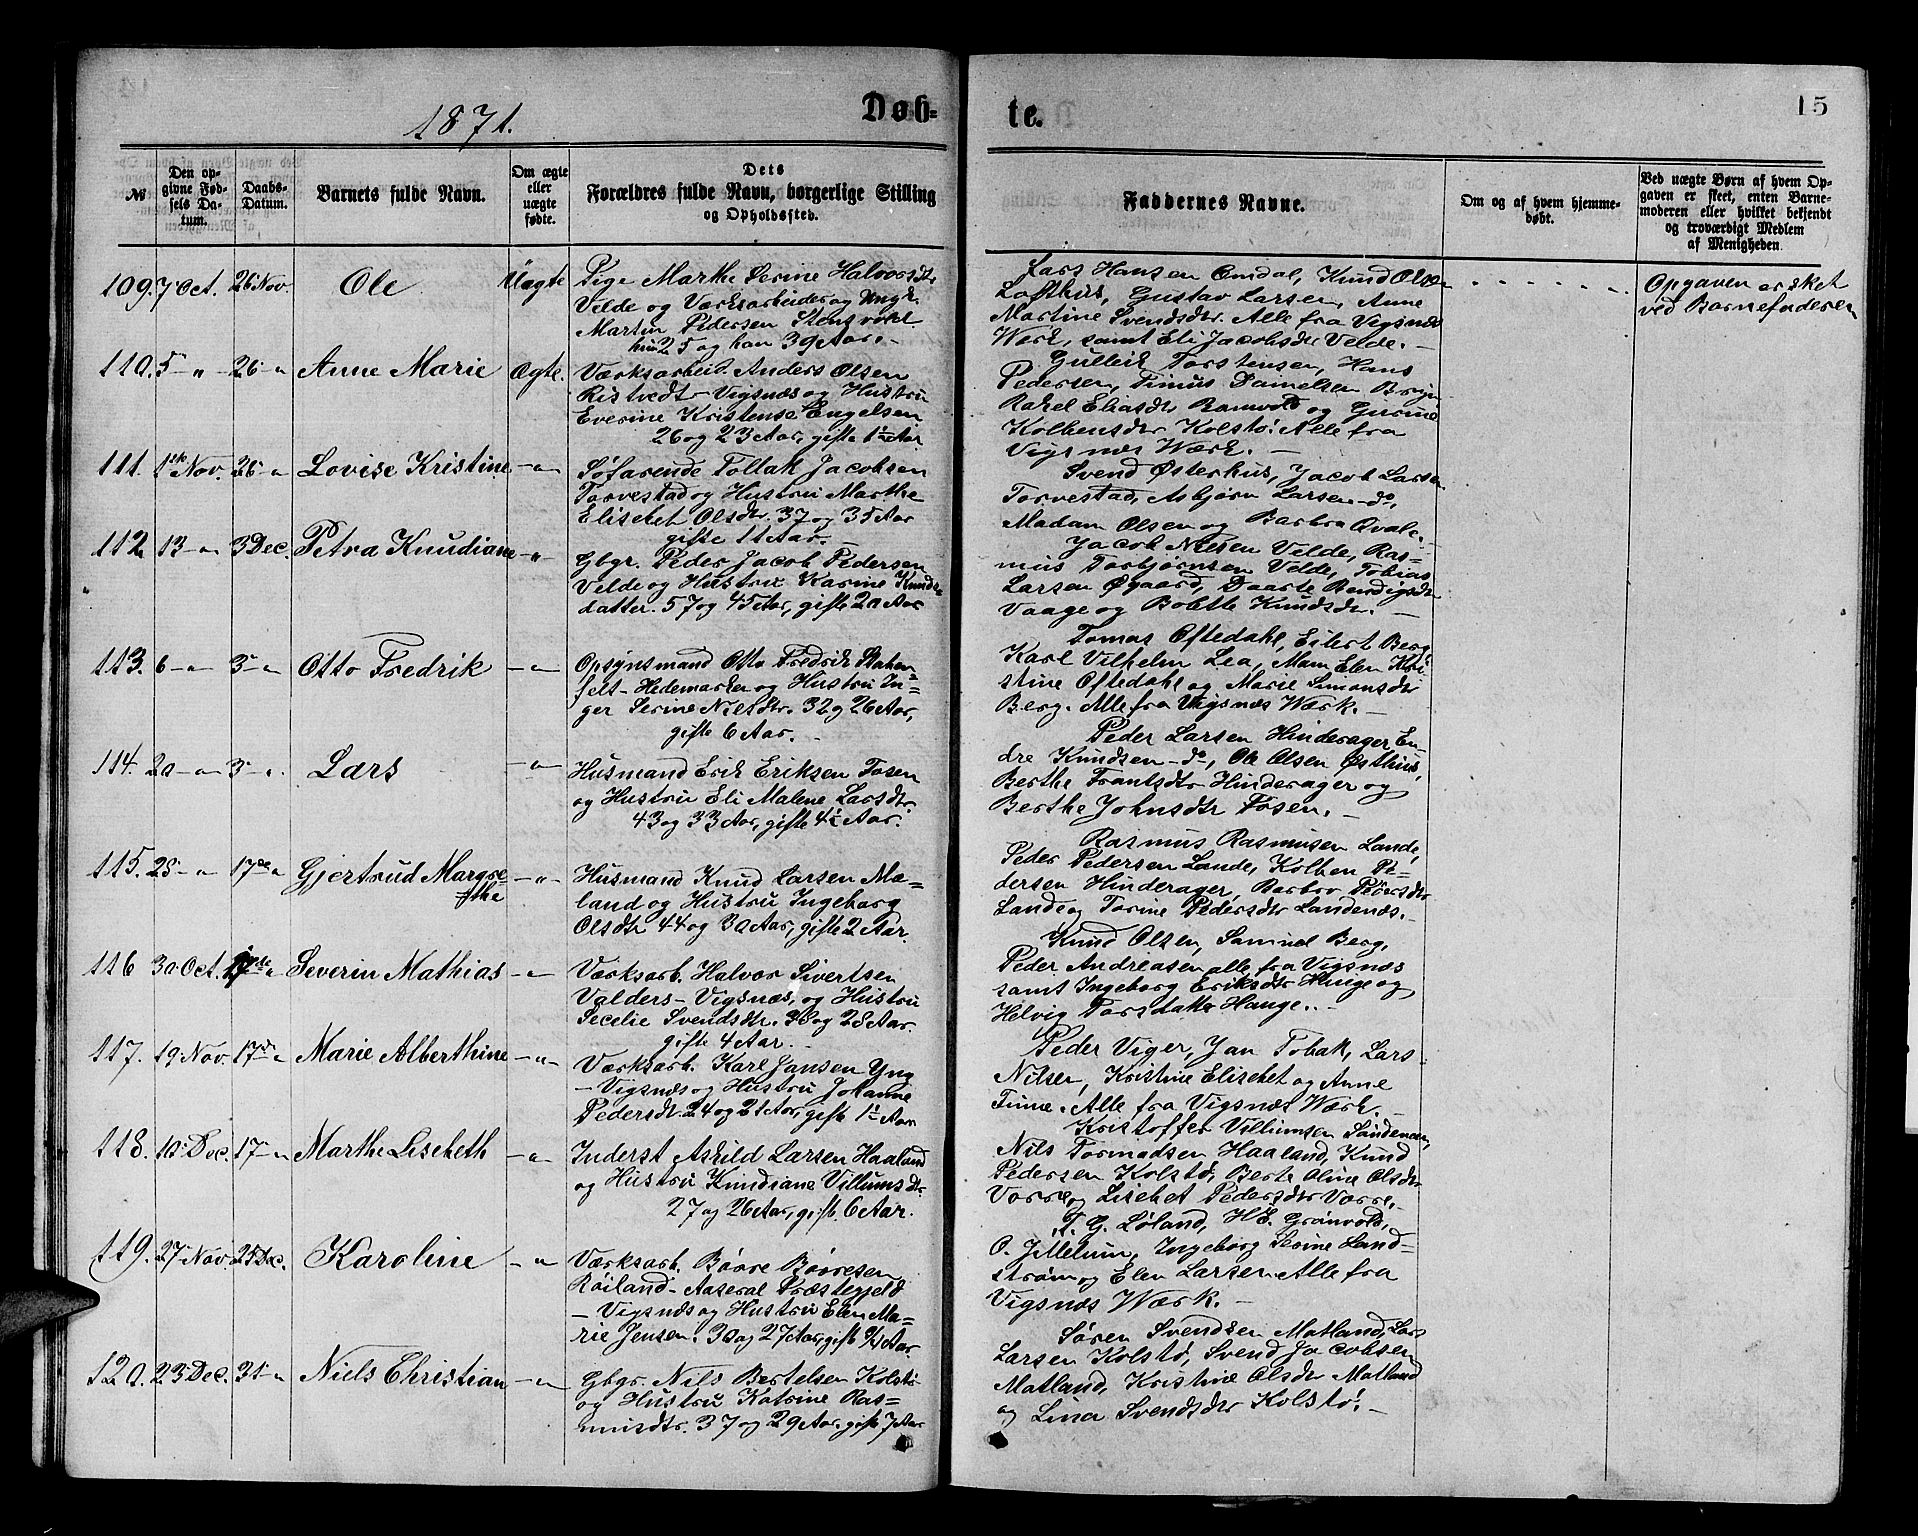 1871.
Døb-
te.
15
№
Den op-
givne Fød-
sels Da-
tum.
Daabs-
Datum.
Barnets fulde Navn.
Om ægte
eller
uægte
fødte.
Dets
Forældres fulde Navn, borgerlige Stilling
og Opholdssted.
Faddernes Navne.
Om og af hvem hjemme-
døbt.
Ved uægte Børn af hvem Op-
gaven er skeet, enten Barne-
moderen eller hvilket bekjendt
og troværdigt Medlem
af Menigheden.
109. 7 Oct. 26 Nov. Ole Uægte
Pige Marthe Serine Halvorsdtr
Velde og Værksarbeider og Ungk.
Martin Pedersen Stensvold
hun 25 og han 39 Aar.-
Lars Hansen Omdal, Knud Olsen
Lofthus, Gustav Larsen, Anne
Martine Svendsdtr. Alle fra Vigsnæs
Værk, samt Eli Jacobsdtr Velde.-
Opgaven er sket
ved Barnefaderen
110. 5 - " - 26 - " Anne Marie Ægte.
Værksarbeid. Anders Olsen
Ristvedt - Vigsnæs og Hustru
Everine Kristense Engelsen
26 og 23 Aar, gifte 1½ Aar
Gulleik Torstensen, Hans
Pedersen, Timus Danielsen Bryn
Rakel Eliasdtr og Gurine
Kolbensdtr Kolstø. Alle fra
Vigsnæs Værk.-
111. 1ste Nov. 26 - " Lovise Kristine - " -
Søfarende Tollak Jacobsen
Torvestad og Hustru Marthe
Elisebet Olsdtr. 37 og 35 Aar
gifte 11 Aar.-
Svend Østerhus, Jacob Larsen
Torvestad, Asbjørn Larsen - do,
Madam Olsen og Barbra Qvale.-
112. 13 - " 3 Dec. Petra Knudiane - " -
Gbgr. Peder Jacob Pedersen
Velde og Hustru Karine Knuds-
datter. 57 og 45 Aar, gifte 20 Aar
Jacob Nilsen Velde, Ras-
mus Torbjørnsen Velde, Tobias
Larsen Øgaard, Daarte Bendigsdtr
Vaage og Bolette Knudsdtr.-
113. 6 - " 3 - " Otto Fredrik - " -
Opsynsmand Otto Fredrik Staken-
felt - Hedemarken og Hustru In-
ger Serine Nilsdtr. 32 og 26 Aar,
gifte 6 Aar.-
Tomas Oftedahl, Eilert Berg
Karl Vilhelm Lea, Mam Elen Kri
stine Oftedahl og Marie Simonsdtr
Berg. Alle fra Vigsnæs Værk.-
114. 20 - " 3 - " Lars - " -
Husmand Erik Eriksen Fosen
og Hustru Eli Malene Larsdtr.
43 og 33 Aar, gifte 4½ Aar.
Peder Larsen Hinderager En-
dre Knudsen - do, Ole Olsen Østhus,
Berthe Frantsdtr Hinderager og
Berthe Johnsdtr Fosen.-
115. 28 - " 17de " Gjertrud Margre-
the - " -
Husmand Knud Larsen Mæ-
land og Hustru Ingeborg
Olsdtr 44 og 30 Aar, gifte 2 Aar.
Rasmus Rasmusen Lande,
Peder Pedersen Lande, Kolben Pe-
dersen Hinderager, Barbro Pedersdtr
Lande og Torine Pedersdtr Landenæs.-
116 30 Oct. 17de " Severin Mathias - " -
Værksarb. Halvor Sivertsen
Valders - Vigsnæs, og Hustru
Secelie Svendsdtr. 38 og 28 Aar.
gifte 4 Aar.-
Knud Olsen, Samuel Berg,
Peder Andreasen alle fra Vigsnæs
samt Ingeborg Eriksdtr Hinge og
Helvig Torsdatter Hauge.-
117. 19 Nov. 17de " Marie Alberthine - " -
Værksarb. Karl Jansen Yng
- Vigsnæs og Hustru Johanne
Pedersdtr. 24 og 21 Aar, gifte 1½ Aar
Peder Viger, Jan Tobak, Lars
Nilsen, Kristine Elisebet og Anne
Time. Alle fra Vigsnæs Værk.-
118. 10 Dec. 17 - " Marthe Lisebeth - " -
Inderst Askild Larsen Haaland
og Hustru Knudiane Villumsdtr.
27 og 26 Aar, gift. 6 Aar.
Kristoffer Villumsen Landenæs,
Nils Tormodsen Haaland, Knud
Pedersen Kolstø, Berte Oline Olsdtr
Vorre og Lisebet Pedersdtr Vorre.-
119. 27 Nov. 25 Dec. Karoline - " -
Værksarb. Børe Børesen
Røiland - Aaseral Præstegjeld
- Vigsnæs og Hustru Elen Ma-
rie Jensen. 30 og 27 Aar, gift Aar.
T. G. Løland, H E. Grønvold,
O. Jillelum, Ingeborg Serine Land-
strøm og Elen Larsen. Alle fra
Vigsnæs Værk.-
120. 23 Dec. 31 - " Niels Christian - " -
Gbgr. Nils Bertelsen Kolstø
og Hustru Katrine Ras-
musdtr. 37 og 29 Aar. gift 7 Aar
Søren Svendsen Matland, Lars
Larsen Kolstø, Svend Jacobsen
Matland, Kristine Olsdtr Matland
og Lina Svendsdtr Kolstø.-